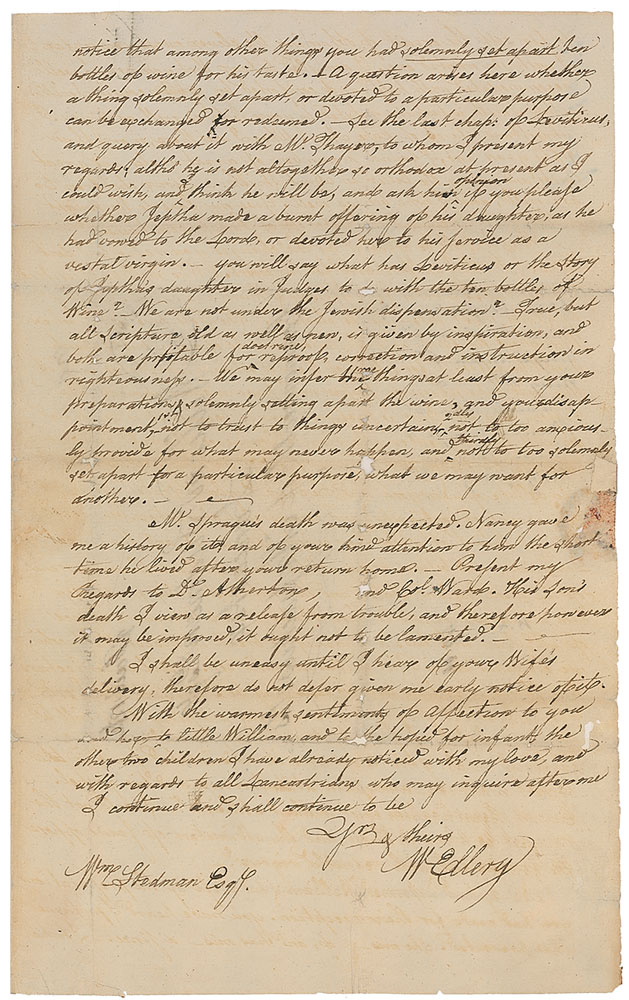 notice that among other things you had solemnly set apart ten
bottles of wine for his taste. – A question arises here whether
a thing solemnly set apart, or devoted to a particular purpose
can be exchanged or redeemed. – See the last chap: of Leviticus,
and query about it with Mr. Thayer, to whom I present my
regards; altho' he is not altogether so orthodox at present as I
could wish, and think he will be, and ask his opinion if you please
whether Jeptha made a burnt offering of his daughter, as he
had vowed to the Lord, or devoted her to his service as a
vestal virgin. – you will say what has Leviticus or the story
of Jepthas daughter in Judges to do with the ten bottles of
Wine? – We are not under the Jewish dispensation? – True, but
all scripture old as well as new, is given by inspiration, and
both are profitable for doctrine, reproof, correction and instruction in
righteousness. – We may infer three things at least from your
preparation, solemnly setting apart the wine, and your disap-
pointment, 1st. not to trust to things uncertain, 2dly not to too anxious-
ly provide for what may never happen, and thirdly not to too solemnly
set apart for a particular purpose, what we may want for
another. –
Mr. Sprague's death was unexpected. Nancy gave
me a history of it, and of your kind attention to him the short
time he lived after your return home. – Present my
Regards to Dr. Atherton, and Col. Ward. His son's
death I view as a release from trouble, and therefore however
it may be improved, it ought not to be lamented. –
I shall be uneasy until I hear of your Wife's
delivery, therefore do not defer given me early notice of it.
With the warmest sentiments of affection to you
and her, to little William, and to the hoped for infant, the
other two children I have already noticed with my love, and
with regards to all Lancastrians who may inquire after me
I continue and shall continue to be
Yrs & theirs
Wm Stedman Esqr.
W Ellery